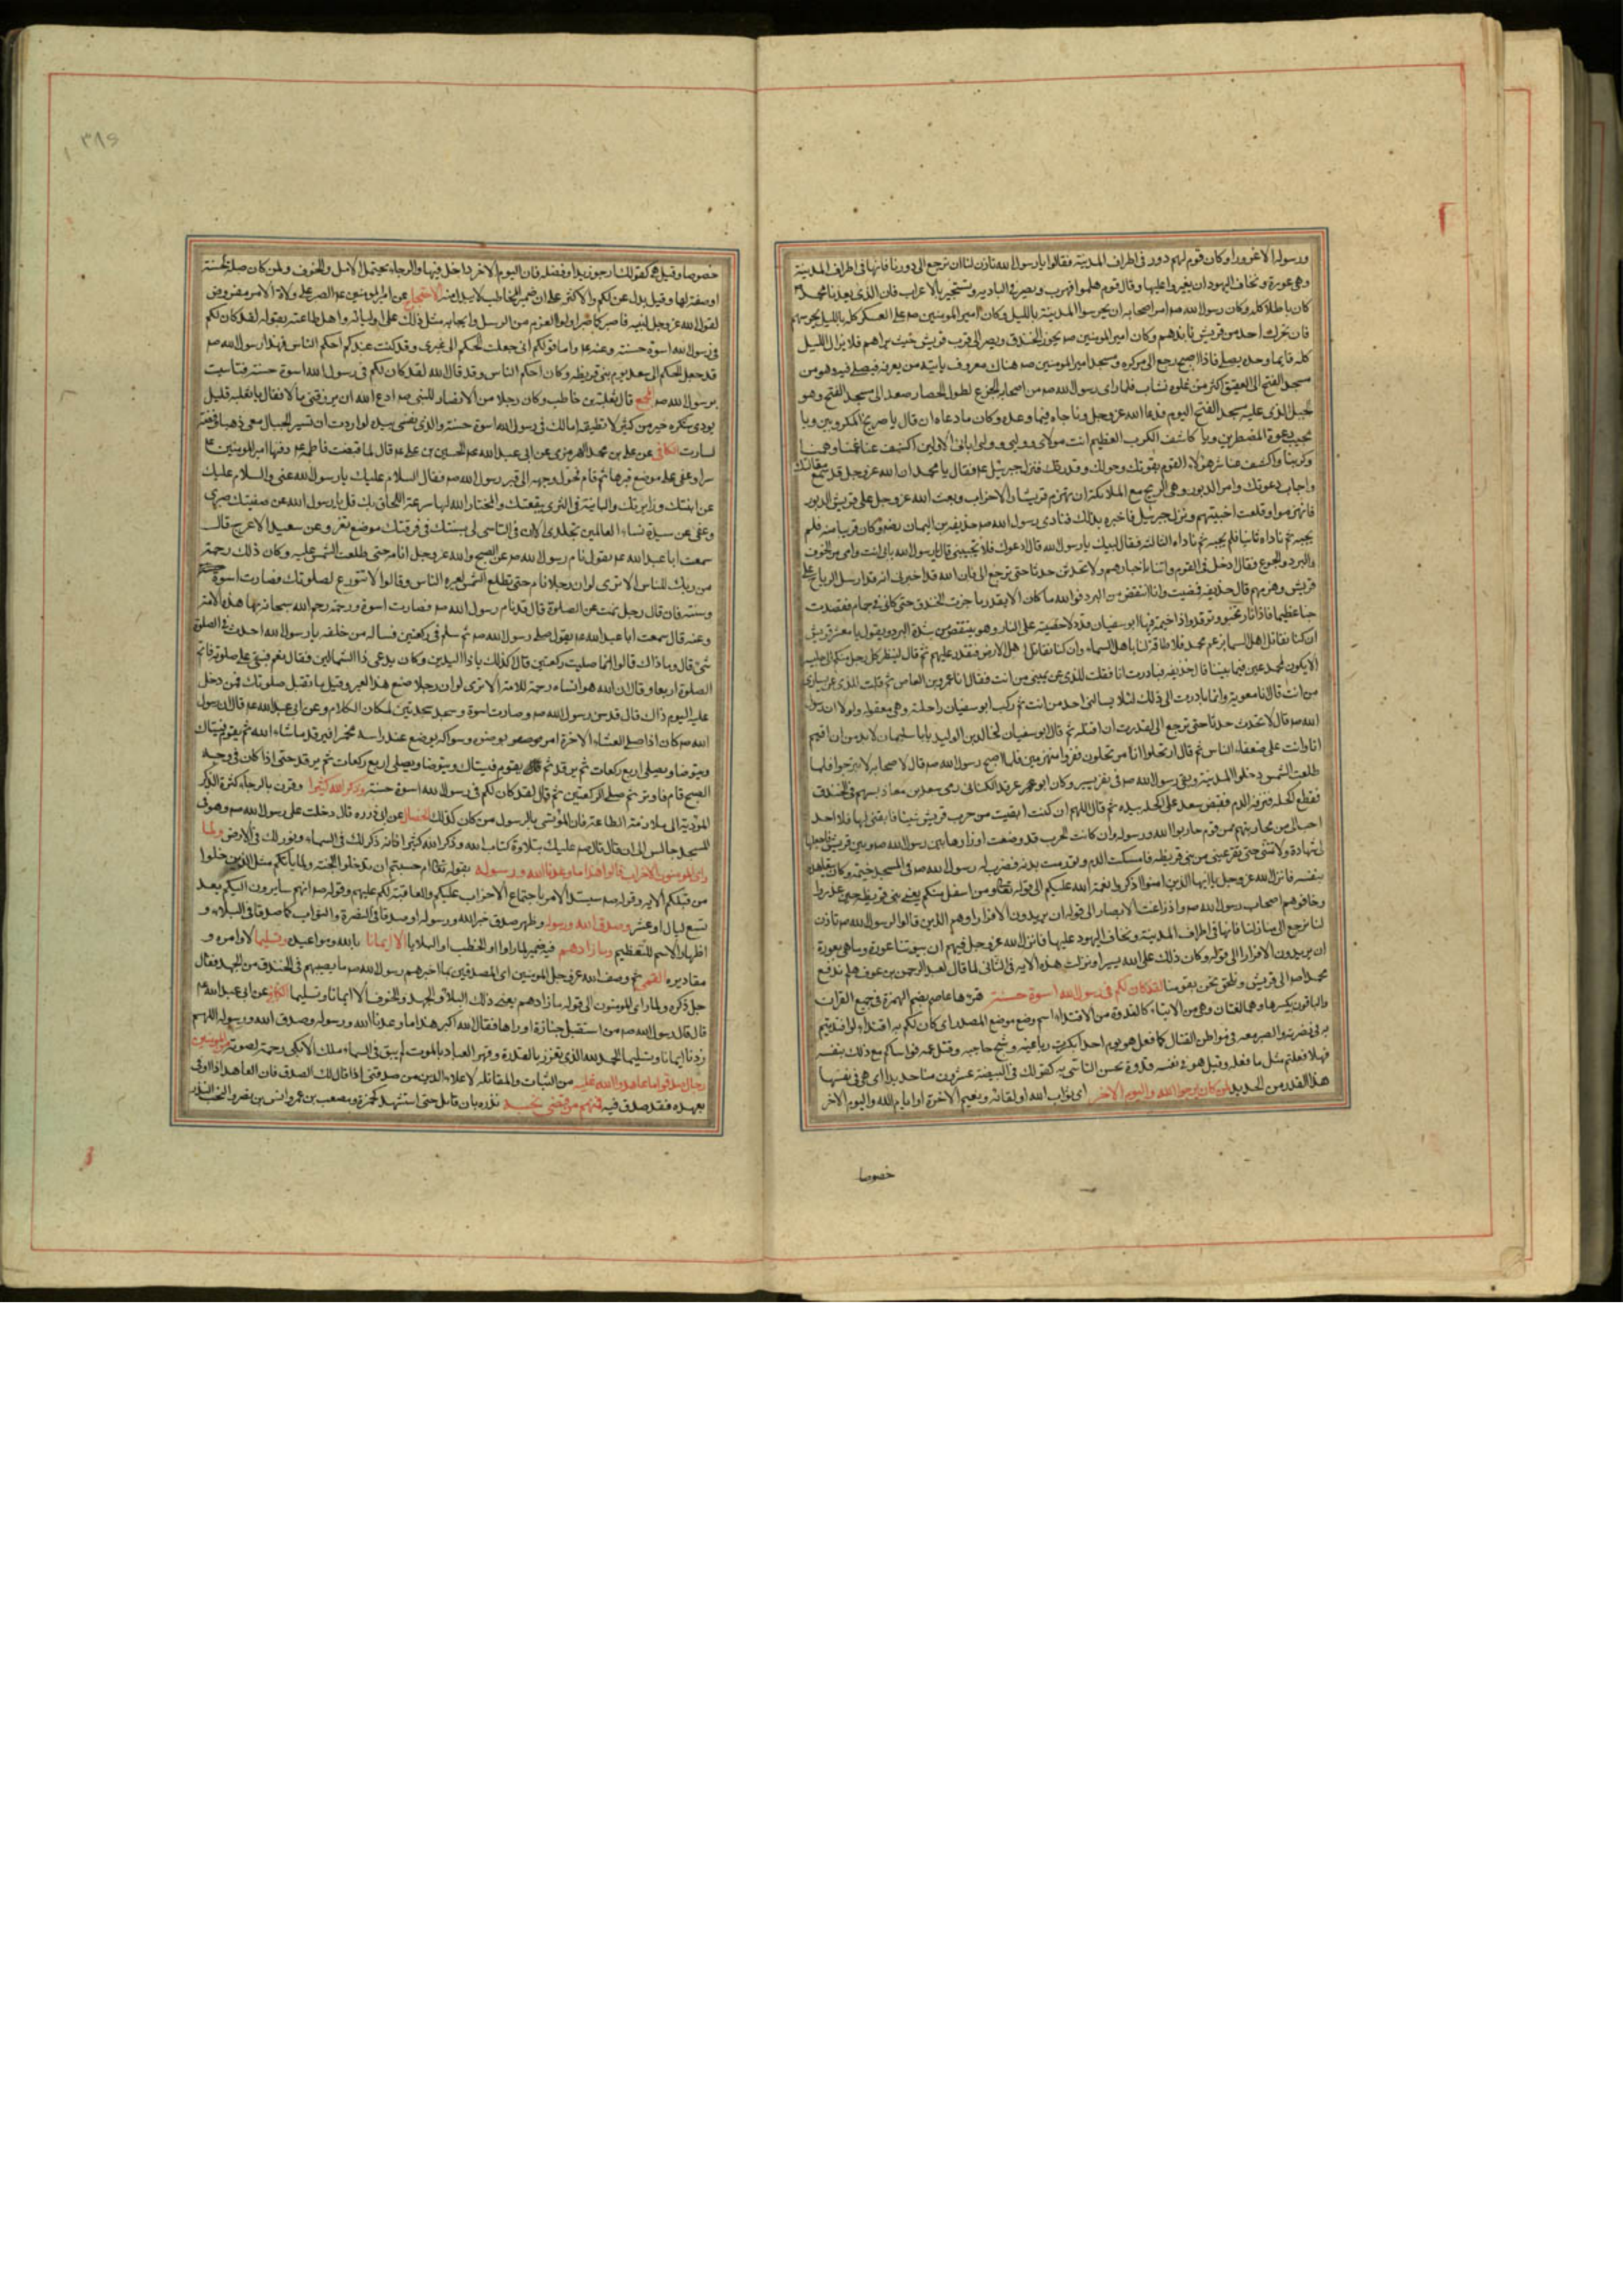 ورسوله الا غرورا وكان قوم لهم دور فى اطراف المدينة فقالوا يا رسول الله تاذن لنا ان نرجع الى دورنا فانها فى اطراف المدينة
وهى عورة ونخاف اليهود ان يغيروا عليها وقال قوم هلموا فنهرب ونصير فى البادية ونستجير بالاعراب فان الذى يعدنا محمد
كان باطلا كله وكان رسول الله صم امر اصحابه ان يحرسوا المدينة بالليل وكان امير المومنين صم على العسكر كله بالليل يحرسهم
فان تحرك احد من قريش نابذهم وكان امير المومنين صم يجوز الخندق ويصير الى قرب قريش حيث يراهم فلا يزال الليل
كله قائما وحده يصلى فاذا اصبح رجع الى مركزه ومسجد امير المومنين صم هناك معروف ياتيه من يعرفه فيصلى فيه وهو من
مسجد الفتح الى العقيق اكثر من غلوة نشاب فلما راى رسول الله صم من اصحابه الجزع لطول الحصار صعد الى مسجد الفتح وهو
الجبل الذى عليه مسجد الفتح اليوم فدعا الله عز وجل وناجاه فيما وعده وكان مما دعاه ان قال يا صريخ المكروبين ويا
مجيب دعوة المضطرين ويا كاشف الكرب العظيم انت مولاى وولیى وولى اباىى الاولين اكشف عنا غمنا وهمنا
وكربنا واكشف عنا شر هؤلاء القوم بقوتك وحولك وقدرتك فنزل جبرئيل عم فقال يا محمد ان الله عز وجل قد سمع مقالتك
واجاب دعوتك وامر الدبور وهى الريح مع الملائكة ان تهزم قريشا والاحزاب وبعث الله عز وجل على قريش الدبور
فانهزموا وقلعت اخبيتهم ونزل جبرئيل فاخبره بذلك فنادى رسول الله صم حذيفة بن اليمان رضه وكان قريبا منه فلم
يجبه ثم ناداه ثانيا فلم يجبه ثم ناداه الثالثة فقال لبيك يا رسول الله قال ادعوك فلا تجيبنى قال يا رسول الله بابى انت وامى من الخوف
والبرد والجوع فقال ادخل فى القوم وائتنا باخبارهم ولا تحدثن حدثا حتى ترجع الى فان الله قد اخبرنى انه قد ارسل الرياح على
قريش وهزمهم قال حذيفة فمضيت وانا انتفض من البرد فوالله ما كان الا بقدر ما جزت الخندق حتى كانى فى حمام فقصدت
خباء عظيما فاذا نار تخبو وتوقد واذا خيمة فيها ابو سفيان قد دلا خصيتيه على النار وهو ينتفض من شدة البرد ويقول يا معشر قريش
ان كنا نقاتل اهل السماء بزعم محمد فلا طاقة لنا باهل السماء وان كنا نقاتل اهل الارض فنقدر عليهم ثم قال لينظر كل رجل منكم الى جليسه
لا يكون لمحمد عين فيما بيننا قال حذيفة فبادرت انا فقلت للذى عن يمينى من انت فقال انا عمرو بن العاص ثم قلت للذى عن يسارى
من انت قال انا معوية وانما بادرت الى ذلك لئلا يسالنى احد من انت ثم ركب ابو سفيان راحلته وهى معقولة ولولا ان رسول
الله صم قال لا تحدث حدثا حتى ترجع الى لقدرت ان اقتله ثم قال ابو سفيان لخالد بن الوليد يا با سليمان لا بد من ان اقيم
انا وانت على ضعفاء الناس ثم قال ارتحلوا انا مرتحلون ففروا منهزمين فلما اصبح رسول الله صم قال لاصحابه لا تبرحوا فلما
طلعت الشمس دخلوا المدينة وبقى رسول الله صم فى نفر يسير وكان ابو عرقد الكنانى رمى سعد بن معاذ بسهم فى الخندق
فقطع اكحله فنزفه الدم فقبض سعد على اكحله بيده ثم قال اللهم ان كنت ابقيت من حرب قريش شيئا فابقنى لها فلا احد
احب الى من محاربتهم من قوم حاربوا الله ورسوله وان كانت الحرب قد وضعت اوزارها بين رسول الله صم وبين قريش فاجعلها
لى شهادة ولا تمتنى حتى تقر عينى من بنى قريظة فامسكت الدم وتورمت يده فضرب له رسول الله صم فى المسجد خيمة وكان يتعاهده
بنفسه فانزل الله عز وجل يا ايها الذين امنوا اذكروا نعمة الله عليكم الى قوله تعالى ومن اسفل منكم يعنى بنى قريظة حين غدروا
وخافوهم اصحاب رسول الله صم واذ زاغت الابصار الى قوله ان يريدون الا فرارا وهم الذين قالوا لرسول الله صم تاذن
لنا نرجع الى منازلنا فانها فى اطراف المدينة ونخاف اليهود عليها فانزل الله عز وجل فيهم ان بيوتنا عورة وما هى بعورة
ان يريدون الا فرارا الى قوله وكان ذلك على الله يسيرا ونزلت هذه الاية فى الثانى لما قال لعبد الرحمن بن عوف هلم ندفع
محمدا صم الى قريش ونلحق نحن بقومنا لقد كان لكم فى رسول الله اسوة حسنة قرءها عاصم بضم الهمزة فى جميع القرآن
والباقون بكسرها وهما لغتان وهى من الايتساء كالقدوة من الاقتداء اسم وضع موضع المصدر اى كان لكم به اقتداء لو اقتديتم
به فى نصرته والصبر معه فى مواطن القتال كما فعل هو يوم احد اذ كسرت رباعيته وشج حاجبه وقتل عمه فواساكم مع ذلك بنفسه
فهلا فعلتم مثل ما فعل وقيل هو فى نفسه قدوة يحسن التاسى به كقولك فى البيضة عشرون منا حديدا اى هى فى نفسها
هذا القدر من الحديد لمن كان يرجوا الله واليوم الاخر اى ثواب الله او لقائه ونعيم الاخرة او ايام الله واليوم الاخر
خصوصا
٣٨٤
خصوصا وقيل هو كقولك ارجو زيدا وفضله فان اليوم الاخر داخل فيها والرجاء يحتمل الامل والخوف ولمن كان صلة لحسنة
او صفة لها وقيل بدل عن لكم والاكثر على ان ضمير المخاطب لا يبدل منه الاحتجاج عن امير المومنين عم الصبر على ولاة الامر مفروض
لقول الله عز وجل لنبيه فاصبر كما صبر اولو العزم من الرسل وايجابه مثل ذلك على اوليائه واهل طاعته بقوله لقد كان لكم
فى رسول الله اسوة حسنة وعنه عم واما قولكم انى جعلت الحكم الى غيرى وقد كنت عندكم احكم الناس فهذا رسول الله صم
قد جعل الحكم الى سعد يوم بنى قريظة وكان احكم الناس وقد قال الله لقد كان لكم فى رسول الله اسوة حسنة فتاسيت
برسول الله صم المجمع قال ثعلبة بن حاطب وكان رجلا من الانصار للنبى صم ادع الله ان يرزقنى مالا فقال يا ثعلبة قليل
يودى شكره خير من كثير لا تطيقه اما لك فى رسول الله اسوة حسنة والذى نفسى بيده لو اردت ان تسير الجبال معى ذهبا وفضة
لسارت الكافى عن على بن محمد الهرمزى عن ابى عبد الله عم الحسين بن على عم قال لما قبضت فاطمة عم دفنها امير المومنين عم
سرا وعفى على موضع قبرها ثم قام فحول وجهه الى قبر رسول الله صم فقال السلام عليك يا رسول الله عنى والسلام عليك
عن ابنتك وزايرتك والبايتة فى الثرى ببقعتك والمختار الله لها سرعة اللحاق بك قل يا رسول الله عن صفيتك صبرى
وعفى عن سيدة نساء العالمين تجلدى الا ان فى التاسى لى بسنتك فى فرقتك موضع تعز وعن سعيد الاعرج قال
سمعت ابا عبد الله عم يقول نام رسول الله صم عن الصبح والله عز وجل انامه حتى طلعت الشمس عليه وكان ذلك رحمة
من ربك للناس الا ترى لو ان رجلا نام حتى تطلع الشمس لعيره الناس وقالوا لا تتورع لصلوتك فصارت اسوة
وسنة فان قال رجل نمت عن الصلوة قال قد نام رسول الله صم فصارت اسوة ورحمة رحم الله سبحانه بها هذه الامة
وعنه قال سمعت ابا عبد الله عم يقول صلى رسول الله صم ثم سلم فى ركعتين فساله من خلفه يا رسول الله احدث فى الصلوة
شىء قال وما ذاك قالوا انما صليت ركعتين قال اكذلك يا ذا اليدين وكان يدعى ذا الشمالين فقال نعم فبنى على صلوته فاتم
الصلوة اربعا وقال ان الله هو انساه رحمة للامة الا ترى لو ان رجلا صنع هذا لعير وقيل ما تقبل صلوتك فمن دخل
عليه اليوم ذاك قال قد سن رسول الله صم وصارت اسوة وسجد سجدتين لمكان الكلام وعن ابى عبد الله عم قال ان رسول
الله صم كان اذا صلى العشاء الاخرة امر بوضوئه وسواكه يوضع عند راسه مخمرا فيرقد ما شاء الله ثم يقوم فيستاك
ويتوضا ويصلى اربع ركعات ثم يرقد ثم يقوم فيستاك ويتوضا ويصلى اربع ركعات ثم يرقد حتى اذا كان فى وجه
الصبح قام فاوتر ثم صلى الركعتين ثم قال لقد كان لكم فى رسول الله اسوة حسنة وذكر الله كثيرا وقرن بالرجاء كثرة الذكر
المودية الى ملازمة الطاعة فان المؤتسى بالرسول من كان كذلك الخصال عن ابى ذر ره قال دخلت على رسول الله صم وهو فى
المسجد جالس الى ان قال قال صم عليك بتلاوة كتاب الله وذكر الله كثيرا فانه ذكر لك فى السماء ونور لك فى الارض ولما
راى المومنون الاحزاب قالوا هذا ما وعدنا الله ورسوله بقوله تعالى ام حسبتم ان تدخلوا الجنة ولما ياتكم مثل الذين خلوا
من قبلكم الاية وقوله صم سيشتد الامر باجتماع الاحزاب عليكم والعاقبة لكم عليهم وقوله صم انهم سايرون اليكم بعد
تسع ليال او عشر وصدق الله ورسوله وظهر صدق خبر الله ورسوله او صدقا فى النصرة والثواب كما صدقا فى البلاء و
اظهار الاسم للتعظيم وما زادهم فيه ضمير لما راوا او الخطب او البلايا الا ايمانا بالله ومواعيده وتسليما لاوامره و
مقاديره القمى ثم وصف الله عز وجل المومنين اى المصدقين بما اخبرهم رسول الله صم ما يصيبهم فى الخندق من الجهد فقال
جل ذكره ولما راى المومنون الى قوله ما زادهم يعنى ذلك البلاء والجهد والخوف الا ايمانا وتسليما الكافى عن ابى عبد الله عم
قال قال رسول الله صم من استقبل جنازة او راها فقال الله اكبر هذا ما وعدنا الله ورسوله وصدق الله ورسوله اللهم
زدنا ايمانا وتسليما الحمد لله الذى تعزز بالقدرة وقهر العباد بالموت لم يبق فى السماء ملك الا بكى رحمة لصوته من المومنين
رجال صدقوا ما عاهدوا الله عليه من الثبات والمقاتلة لاعلاء الدين من صدقنى اذا قال لك الصدق فان العاهد اذا اوفى
بعهده فقد صدق فيه فمنهم من قضى نحبه نذره بان قاتل حتى استشهد كحمزة ومصعب بن عمر وانس بن نضر والنحب النذر